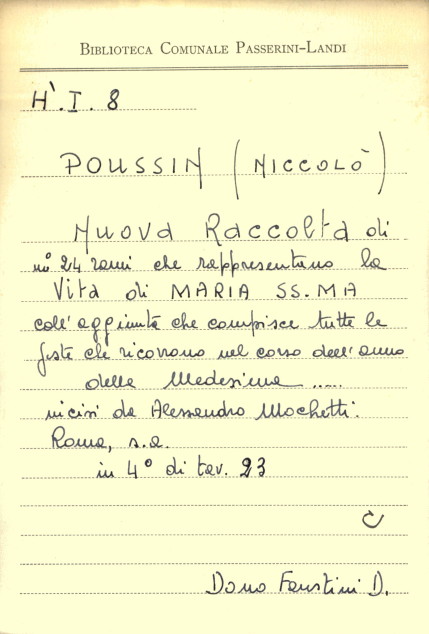 BIBLIOTECA COMUNALE PASSERINI-LANDI
H`. I. 8
POUSSIN (NICCOLÒ)
Nuova Raccolta di
nº 24 rami che rappresentano la
Vita di MARIA SS.MA
coll'aggiunta che compisce tutte le
feste che ricorrono nel corso dell'anno
della Medesima .....
incisi da Alessandro Mochetti.
Roma, s.a.
in 4° di tav. 23
C
Dono Faustini D.